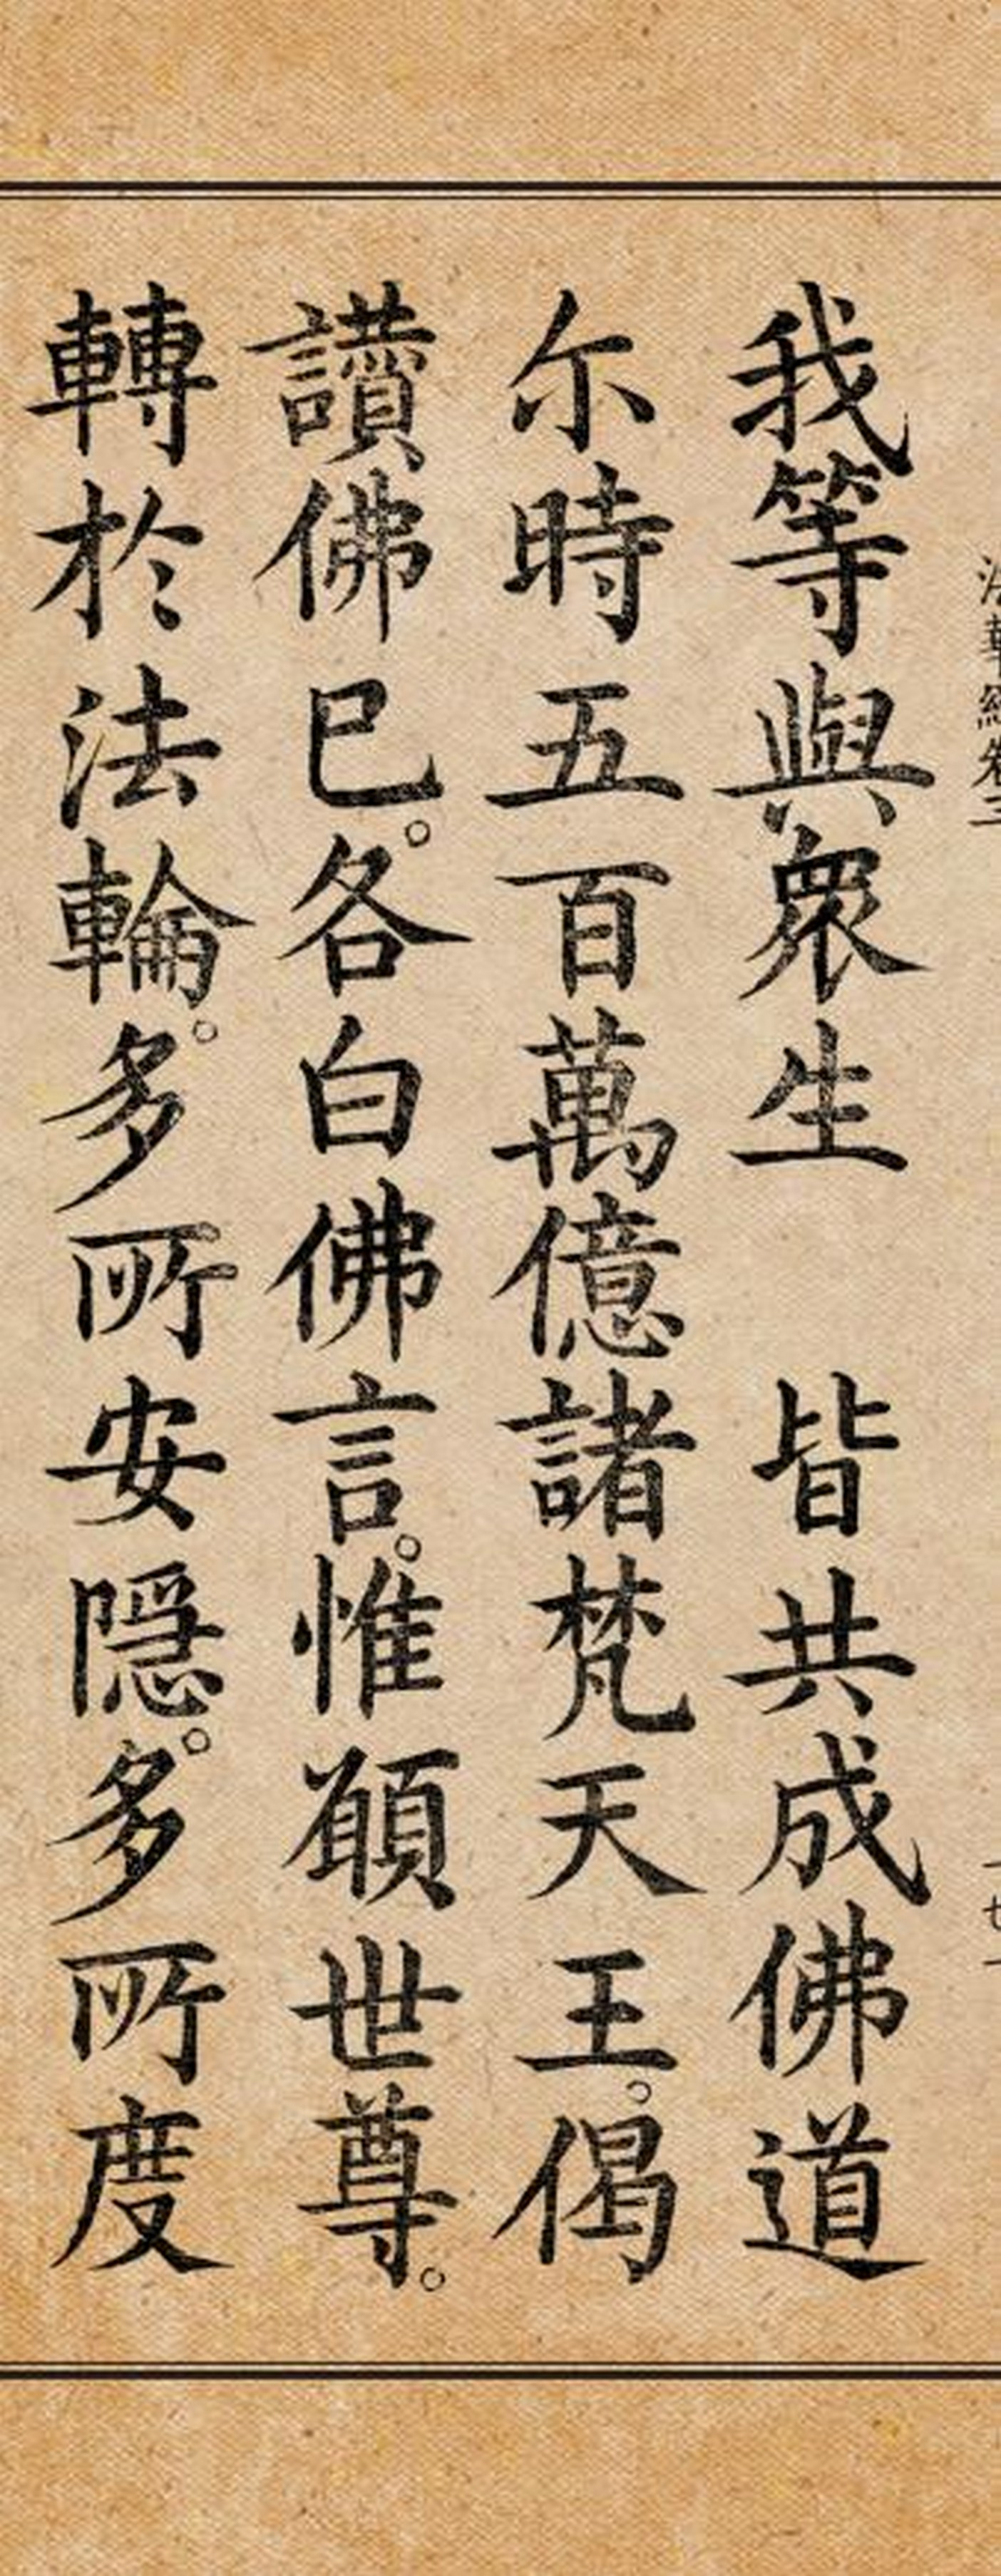 法華經卷三
我等與衆生　皆共成佛道
尒時五百萬億諸梵天王。偈
讃佛已。各白佛言。惟願世尊。
轉於法輪。多所安隱。多所度